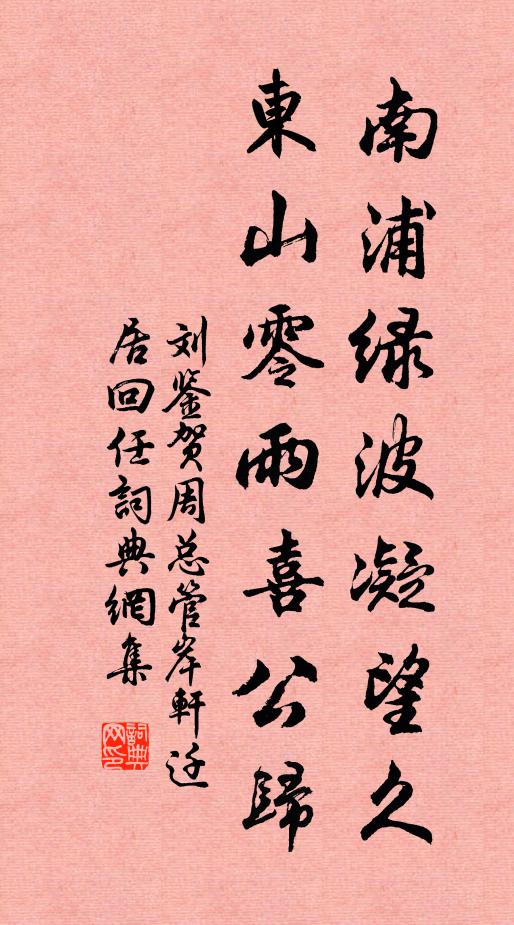 南浦緑波凝望久
東山零雨喜公歸
刘鉴贺周总管岸軒迁
居回任詞典網集
詞典
网印